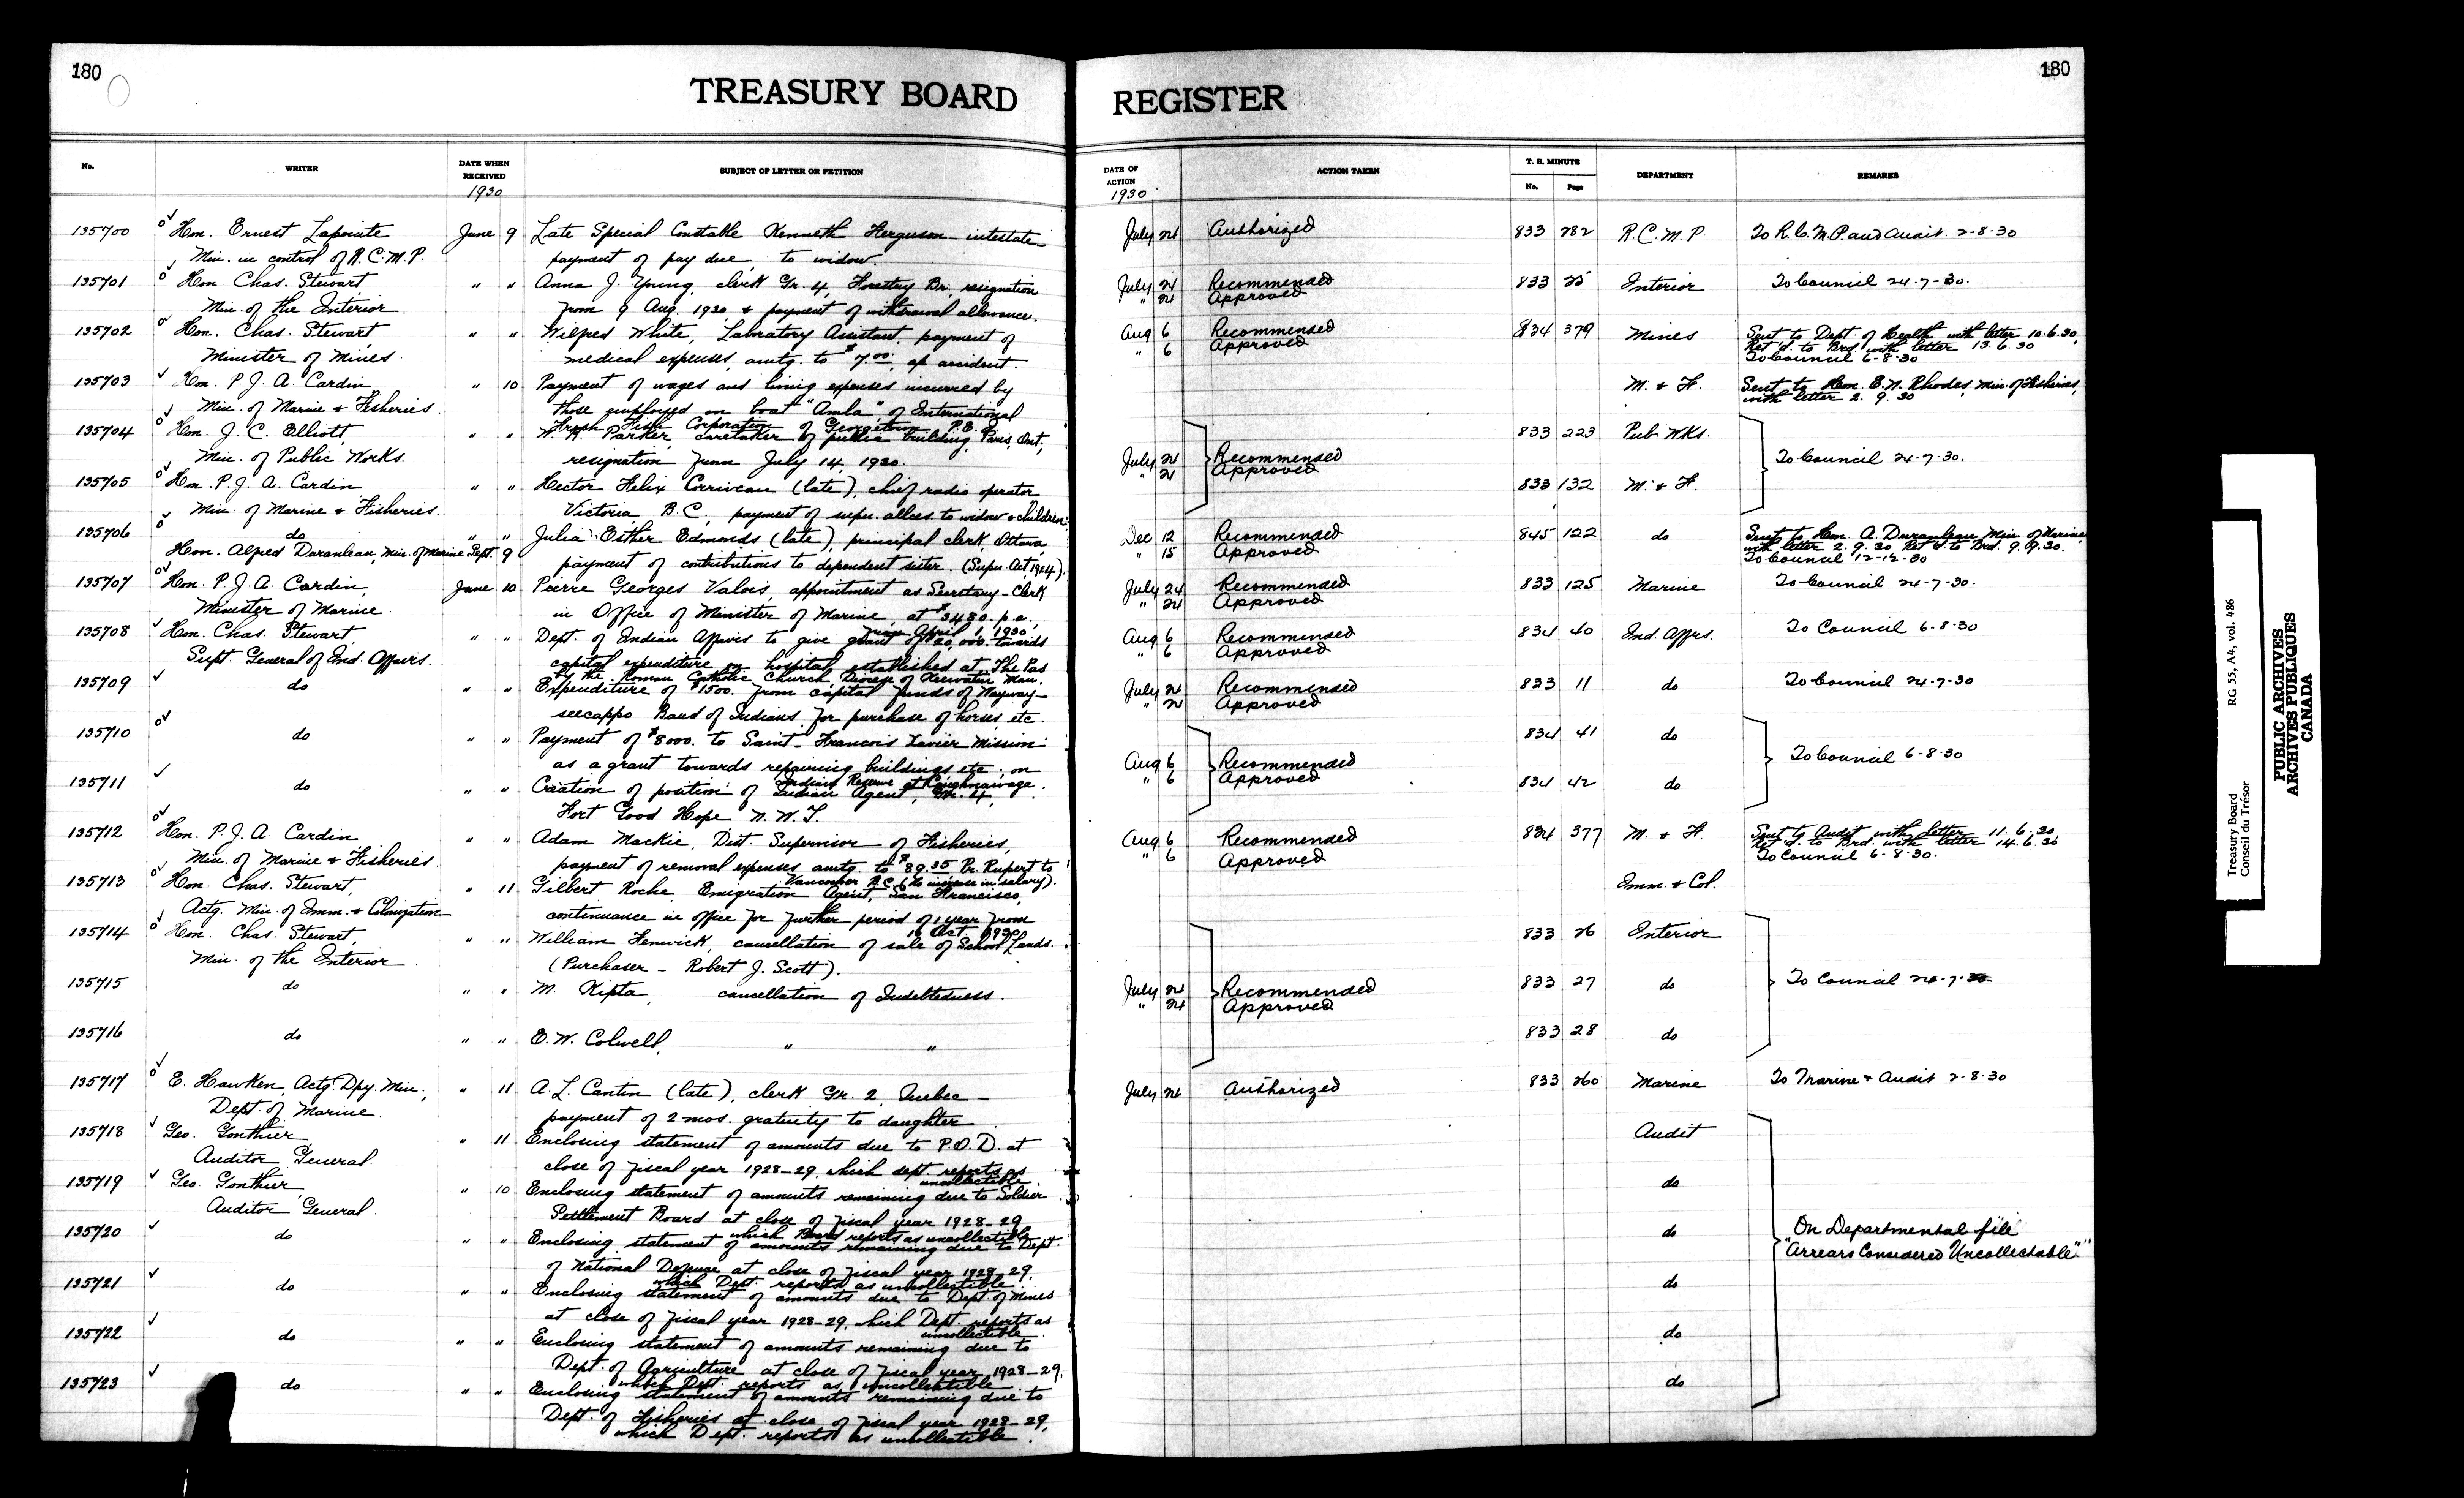 180
180
TREASURY BOARD REGISTER
No. WRITER DATE WHEN RECEIVED SUBJECT OF LETTER OR PETITION DATE OF ACTION ACTION TAKEN T. B. MINUTE No. Page DEPARTMENT REMARKS
1930 1930
135700 Hon. Ernest Lapointe June 9 Late Special Constable Kenneth Ferguson - intestate July 24 Authorized 833 282 R.C.M.P. To R.C.M.P. and Audit. 2-8-30
Min. in control of R.C.M.P. payment of pay due, to widow.
135701 Hon. Chas. Stewart " " Anna J. Young, clerk Gr. 4, Forestry Br., resignation July 24 Recommended 833 25 Interior To Council 24-7-30.
Min. of the Interior from 9 Aug. 1930, & payment of withdrawal allowance. " 24 Approved
135702 Hon. Chas. Stewart " " Wilfred White, Labratory Assistant, payment of Aug 6 Recommended 834 379 Mines Sent to Dept. of Health with letter 10.6.30,
Minister of Mines. medical expenses, amtg. to $7.00, of accident. " 6 Approved Ret'd. to Brd. with letter 13.6.30
To Council 6-8-30
135703 Hon. P. J. A. Cardin " 10 Payment of wages and living expenses incurred by M. & F. Sent to Hon. E. N. Rhodes, Min. of Fisheries,
Min. of Marine & Fisheries. those employed on boat "Amla", of International with letter 2.9.30
Fresh Fish Corporation of Georgetown P.E.I.
135704 Hon. J. C. Elliott, " " W. H. Parker, caretaker of public building, Paris, Ont., July 24 Recommended 833 223 Pub. Wks. To Council 24-7-30.
Min. of Public Works. resignation from July 14, 1930. " 24 Approved
135705 Hon. P. J. A. Cardin " " Hector Felix Corriveau (late), chief radio operator 833 132 M. & F.
Min. of Marine & Fisheries. Victoria B.C., payment of supn. allces. to widow & children.
135706 do " " Julia Esther Edmonds (late), principal clerk, Ottawa, Dec 12 Recommended 845 122 do Sent to Hon. A. Duranleau Min. of Marine
Hon. Alfred Duranleau, Min. of Marine Sept. 9 payment of contributions to dependent sister. (Supn. Act, 1924). " 15 Approved with letter 2.9.30 Ret'd. to Brd. 9.9.30.
To Council 12-12-30
135707 Hon. P. J. A. Cardin, June 10 Pierre Georges Valois, appointment as Secretary-Clerk July 24 Recommended 833 125 Marine To Council 24-7-30.
Minister of Marine. in Office of Minister of Marine, at $3480. p.a., " 24 Approved
from April 1, 1930.
135708 Hon. Chas. Stewart, " " Dept. of Indian Affairs to give grant of $20,000. towards Aug 6 Recommended 834 40 Ind. Affrs. To Council 6-8-30
Supt. General of Ind. Affairs. capital expenditure on hospital established at The Pas " 6 Approved
by the Roman Catholic Church, Diocese of Keewatin Man.
135709 do " " Expenditure of $1500. from capital funds of Wayway- July 24 Recommended 833 11 do To Council 24-7-30
seecappo Band of Indians for purchase of horses, etc. " 24 Approved
135710 do " " Payment of $8000. to Saint-Francois Xavier Mission 834 41 do
as a grant towards repairing buildings etc., on Aug 6 Recommended To Council 6-8-30
Indian Reserve at Caughnawaga.
135711 do " " Creation of position of Indian Agent, Gr. 4, " 6 Approved 834 42 do
Fort Good Hope N.W.T.
135712 Hon. P. J. A. Cardin, " " Adam Mackie, Dist. Supervisor of Fisheries, Aug 6 Recommended 834 377 M. & F. Sent to Audit with letter 11.6.30,
Min. of Marine & Fisheries. payment of removal expenses amtg. to $89.35 Pr. Rupert to " 6 Approved Ret'd. to Brd. with letter 14.6.30
Vancouver B.C. (no increase in salary). To Council 6-8-30.
135713 Hon. Chas. Stewart, " 11 Gilbert Roche, Emigration Agent, San Francisco, Imm. & Col.
Actg. Min. of Imm. & Colonization continuance in office for further period of 1 year from
Oct. 1930
135714 Hon. Chas. Stewart, " " William Fenwick, cancellation of sale of School Lands. 833 26 Interior
Min. of the Interior (Purchaser - Robert J. Scott).
135715 do " " M. Kipta, cancellation of Indebtedness. July 24 Recommended 833 27 do To Council 24-7-30
" 24 Approved
135716 do " " E. W. Colwell, " " 833 28 do
135717 E. Hawken, Actg. Dpy. Min., " 11 A. L. Cantin (late), clerk Gr. 2, Quebec - July 24 Authorized 833 260 Marine To Marine & Audit 2-8-30
Dept. of Marine. payment of 2 mos. gratuity to daughter
135718 Geo. Gonthier " 11 Enclosing statement of amounts due to P.O.D. at Audit
Auditor General. close of fiscal year 1928-29, which dept. reports as
uncollectible.
135719 Geo. Gonthier " 10 Enclosing statement of amounts remaining due to Soldier do
Auditor General. Settlement Board at close of fiscal year 1928-29
which Board reports as uncollectible.
135720 do " " Enclosing statement of amounts remaining due to Dept. do On Departmental file
of National Defence at close of fiscal year 1928-29, "Arrears Considered Uncollectable"
which Dept. reports as uncollectible.
135721 do " " Enclosing statement of amounts due to Dept. of Mines do
at close of fiscal year 1928-29, which Dept. reports as
uncollectible.
135722 do " " Enclosing statement of amounts remaining due to do
Dept. of Agriculture at close of fiscal year 1928-29,
which Dept. reports as uncollectible
135723 do " " Enclosing statement of amounts remaining due to do
Dept. of Fisheries at close of fiscal year 1928-29,
which Dept. reports as uncollectible.
Treasury Board RG 55, A4, vol. 486
Conseil du Trésor
PUBLIC ARCHIVES
ARCHIVES PUBLIQUES
CANADA